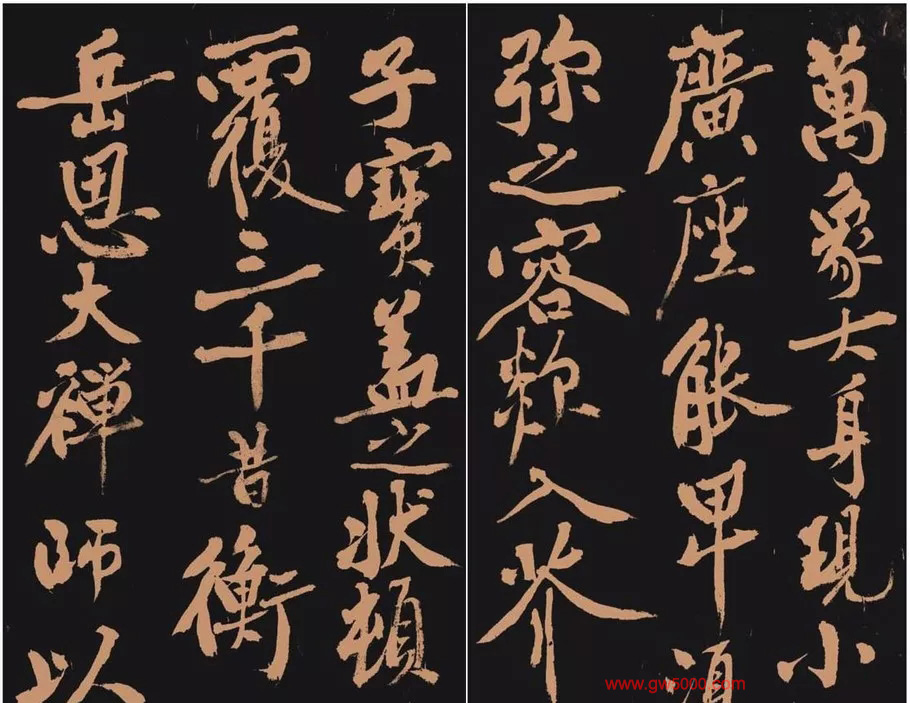 萬象大身現小
廣座能卑須
弥之容欻入芥
子寶盖之狀頓
覆三千昔衡
岳思大禅師以
www.gw5000.com